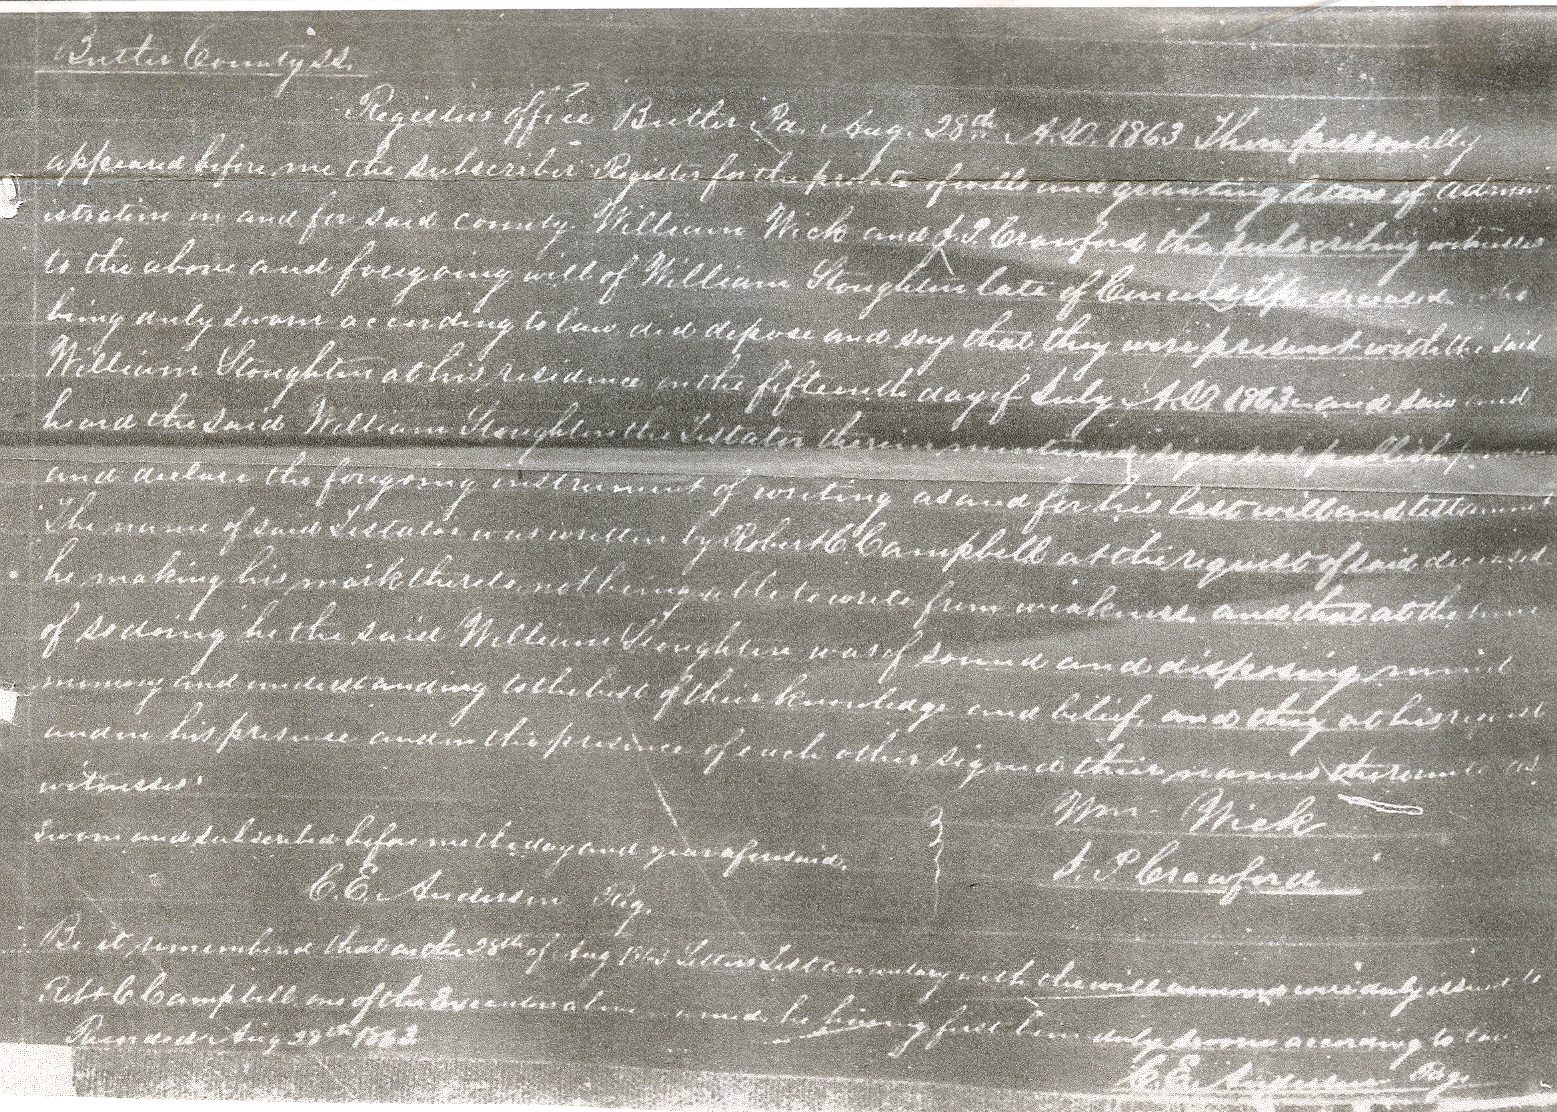 Butler County ss.
Registers office Butler Pa. Aug. 28th A.D. 1863 Then personally
appeared before me the subscriber Register for the probate of wills and granting letters of admin
istration in and for said county William Wick and J. P. Crawford the subscribing witnesses
to the above and foregoing will of William Stoughton late of Twp. deceased who
being duly sworn according to law did depose and say that they were present with the said
William Stoughton at his residence on the fifteenth day of July A.D. 1863 and saw and
heard the said William Stoughton the Testator therein
and declare the foregoing instrument of writing as and for his last will and testament
The name of said Testator was written by Robert C. Campbell at the request of said deceased
he making his mark thereto not being able to write from weakness and that at the time
of so doing he the said William Stoughton was of sound and disposing mind
memory and understanding to the best of their knowledge and belief, and they at his request
and in his presence and in the presence of each other signed their names thereunto as
witnesses.
Wm. Wick
Sworn and subscribed before me the day and year aforesaid.
J. P. Crawford
C. E. Anderson Reg.
Be it remembered that on the 28th of Aug 1863 Letters Testamentary with the will annexed were duly issued to
Robt C Campbell one of the Executors named he having first been duly sworn according to law
Recorded Aug 28th 1863
C. E. Anderson Reg